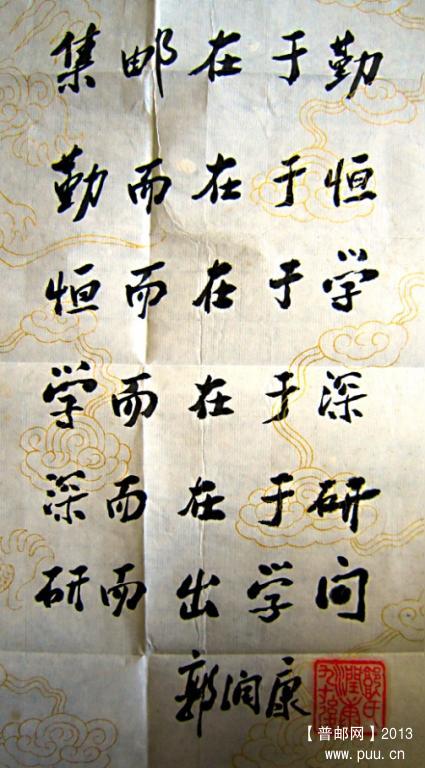 集邮在于勤
勤而在于恒
恒而在于学
学而在于深
深而在于研
研而出学问
郭润康
【普邮网】2013
www.puu.cn